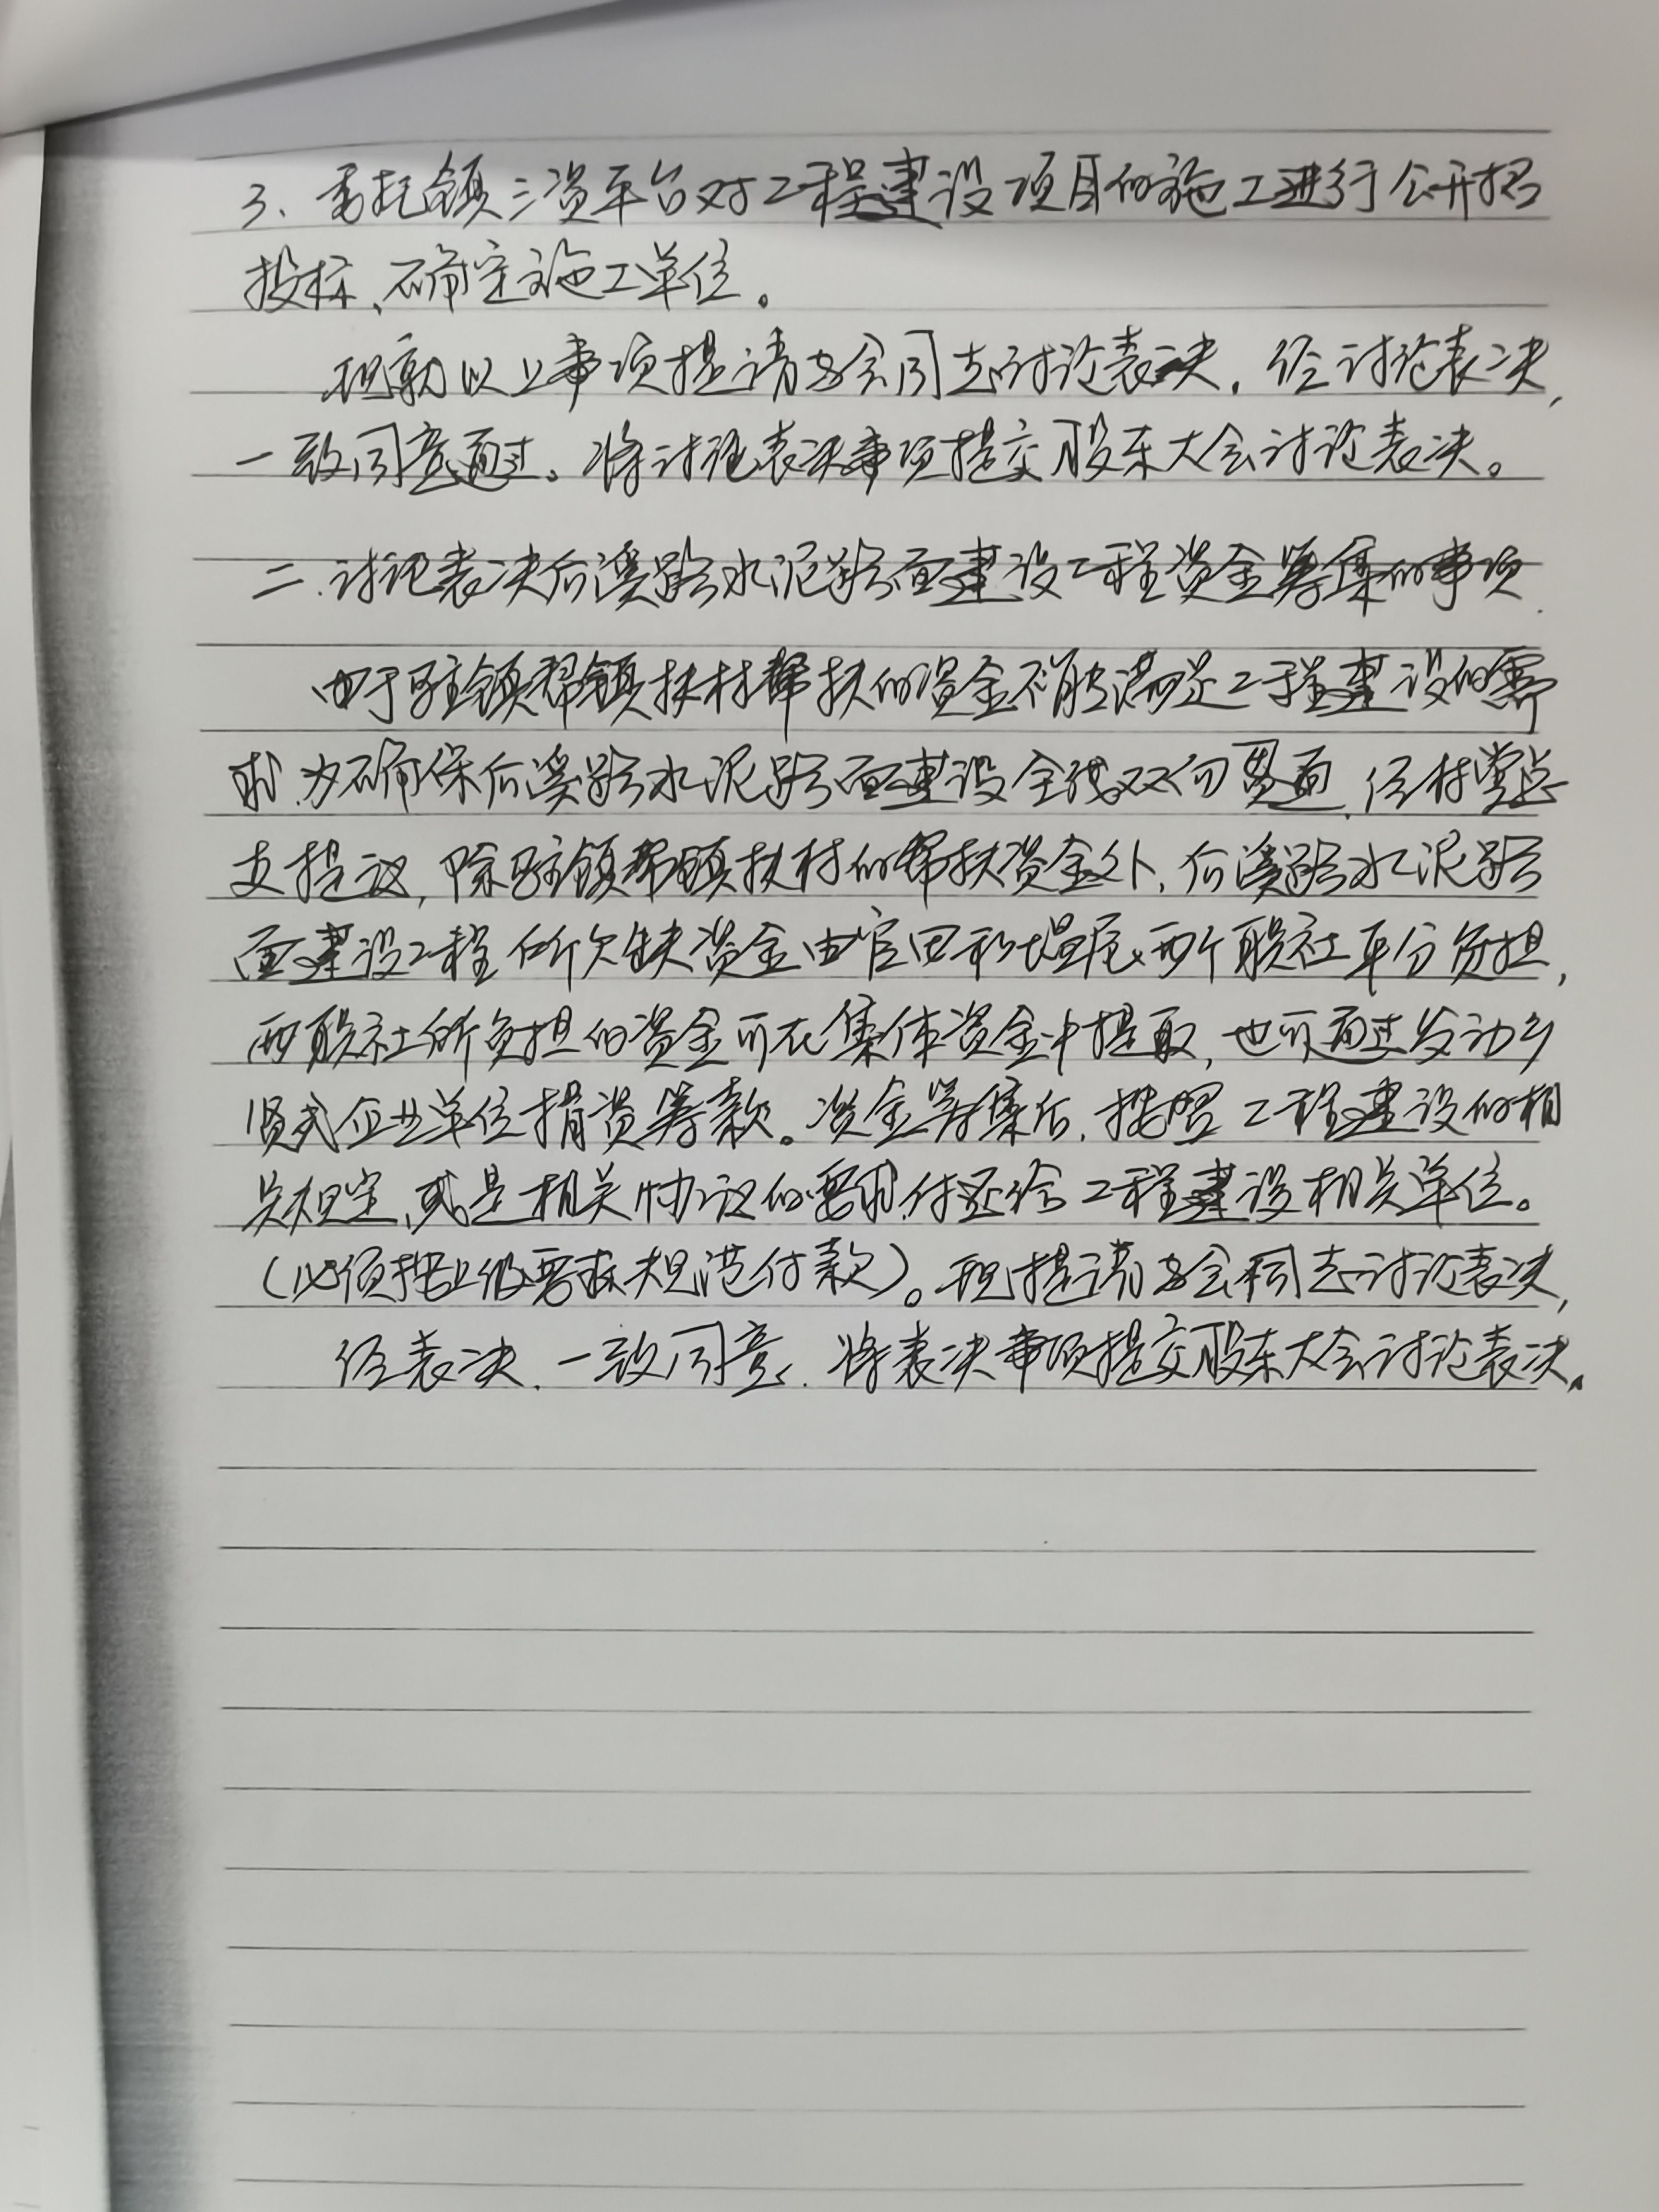 3、委托镇三资平台对工程建设项目的施工进行公开招
投标、确定施工单位。
现就以上事项提请与会同志讨论表决。经讨论表决,
一致同意通过。将讨论表决事项提交股东大会讨论表决。
二.讨论表决后溪路水泥路面建设工程资金筹集的事项.
由于驻镇帮镇扶村帮扶的资金不能满足工程建设的需
求.为确保后溪路水泥路面建设全线双向贯通,经村党总
支提议,除驻镇帮镇扶村的帮扶资金外,后溪路水泥路
面建设工程所欠缺资金由官田和塭尾两个股社平分负担,
两股社所负担的资金可在集体资金中提取,也可通过发动乡
贤或企业单位捐资筹款。资金筹集后,按照工程建设的相
关规定,或是相关协议的要求,付还给工程建设相关单位。
(必须按上级要求规范付款)。现提请与会同志讨论表决,
经表决.一致同意.将表决事项提交股东大会讨论表决。